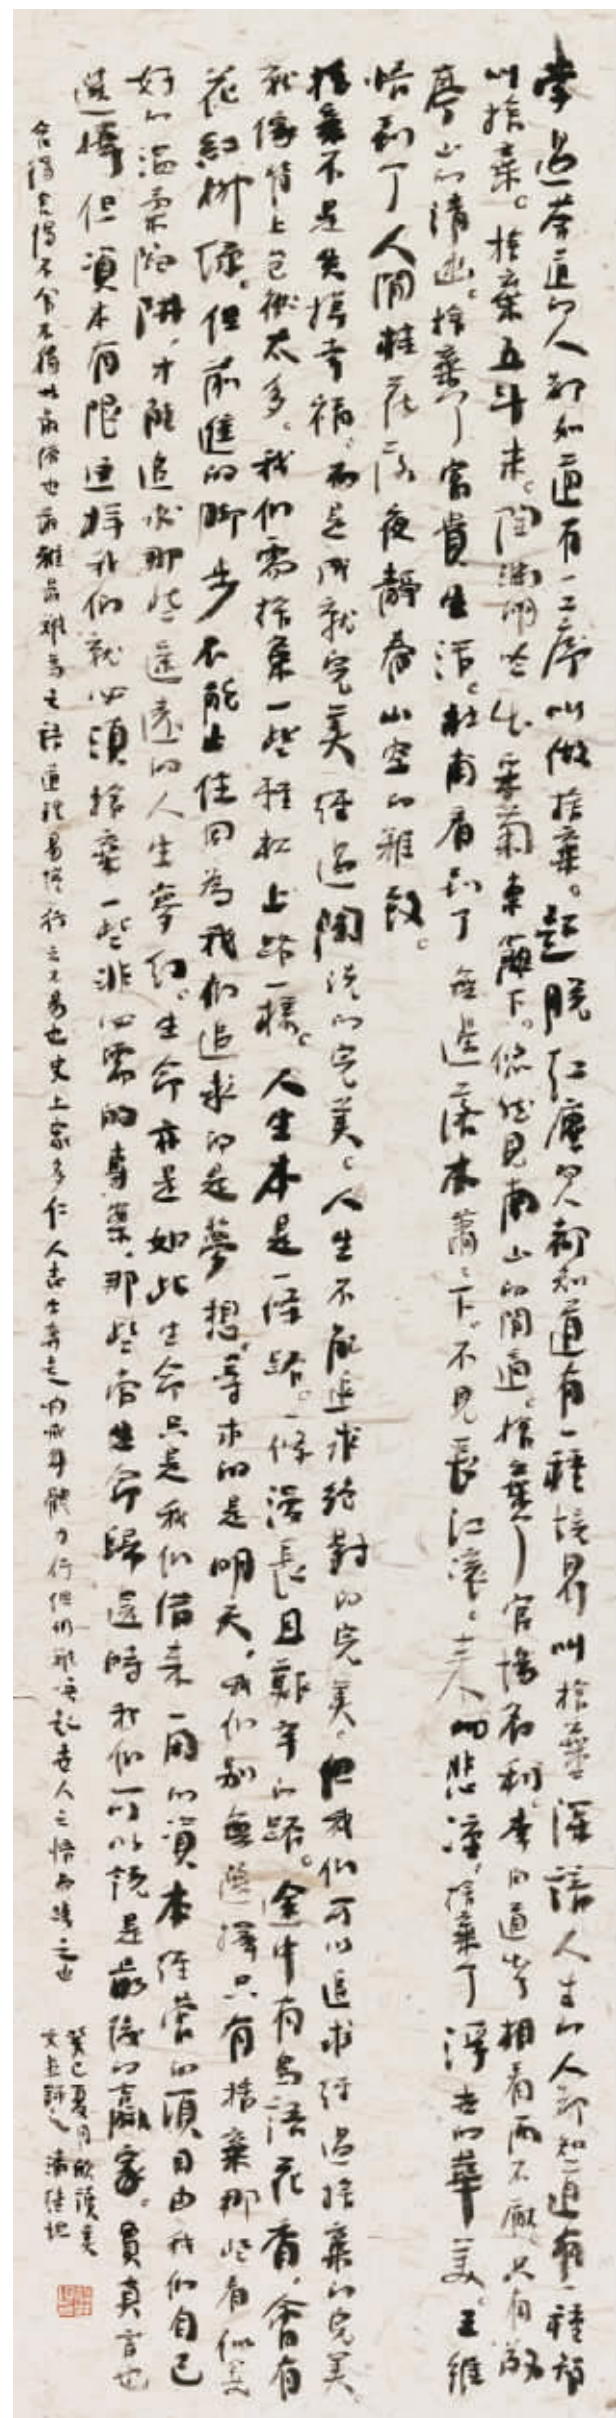 学过茶道的人都知道有一工序叫做捨棄。超脱红塵的人都知道有一種境界叫捨棄深諳人生的人都知道有一種智
叫捨棄。捨棄五斗米。陶渊明吟出采菊東籬下。悠然見南山的閒適。捨棄了官場名利。李白道出相看兩不厭只有敬
亭山的清幽。捨棄了富貴生活。杜甫看到了無邊落木蕭々下。不見長江滾々来的悲凉。捨棄了浮世的華美。王維
悟到了人間桂花落夜靜春山空的雅致。
捨棄不是失掉幸福。而是成就完美經過陶洗的完美。人生不能追求絶對的完美。但我们可以追求經過捨棄的完美。
就像背上包袱太多。我们需捨棄一些輕松上路一樣。人生本是一條路。一條漫長且艱辛的路。途中有鳥語花香，會有
花紅柳绿。但前進的脚步不能止住因為我们追求的是夢想。尋求的是明天，我们别無選擇只有捨棄那些看似美
好的温柔陷阱，才能追求那些遥遠的人生夢幻。生命亦是如此生命只是我们借来一用的資本經營的項目由我们自己
選擇但資本有限這樣我们就必須捨棄一些非必需的專案。那些當生命歸還時我们可以說是最後的贏家。貫真言也
舍得舍得不舍不得
癸巳夏月欣讀美
文